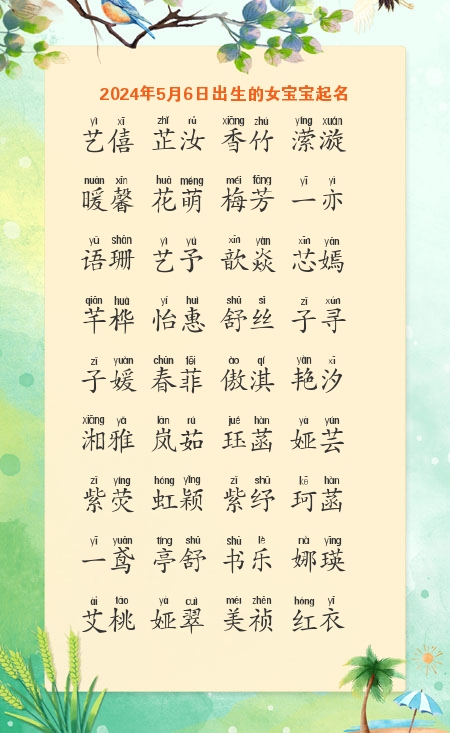 2024年5月6日出生的女宝宝起名
yì xī zhǐ rǔ xiāng zhú yíng xuán
艺僖 芷汝 香竹 潆漩
nuǎn xīn huā méng méi fāng yī yì
暖馨 花萌 梅芳 一亦
yǔ shān yì yú xīn yàn xīn yān
语珊 艺予 歆焱 芯嫣
qiān huà yí huì shū sī zǐ xún
芊桦 怡惠 舒丝 子寻
zǐ yuàn chūn fēi ào qí yàn xī
子媛 春菲 傲淇 艳汐
xiāng yǎ lán rú jué hàn yà yún
湘雅 岚茹 珏菡 娅芸
zǐ yíng hóng yǐng zǐ shū kē hàn
紫荧 虹颖 紫纾 珂菡
yī yuān tíng shū shū lè nà yīng
一鸢 亭舒 书乐 娜瑛
ài táo yà cuì měi zhēn hóng yī
艾桃 娅翠 美祯 红衣